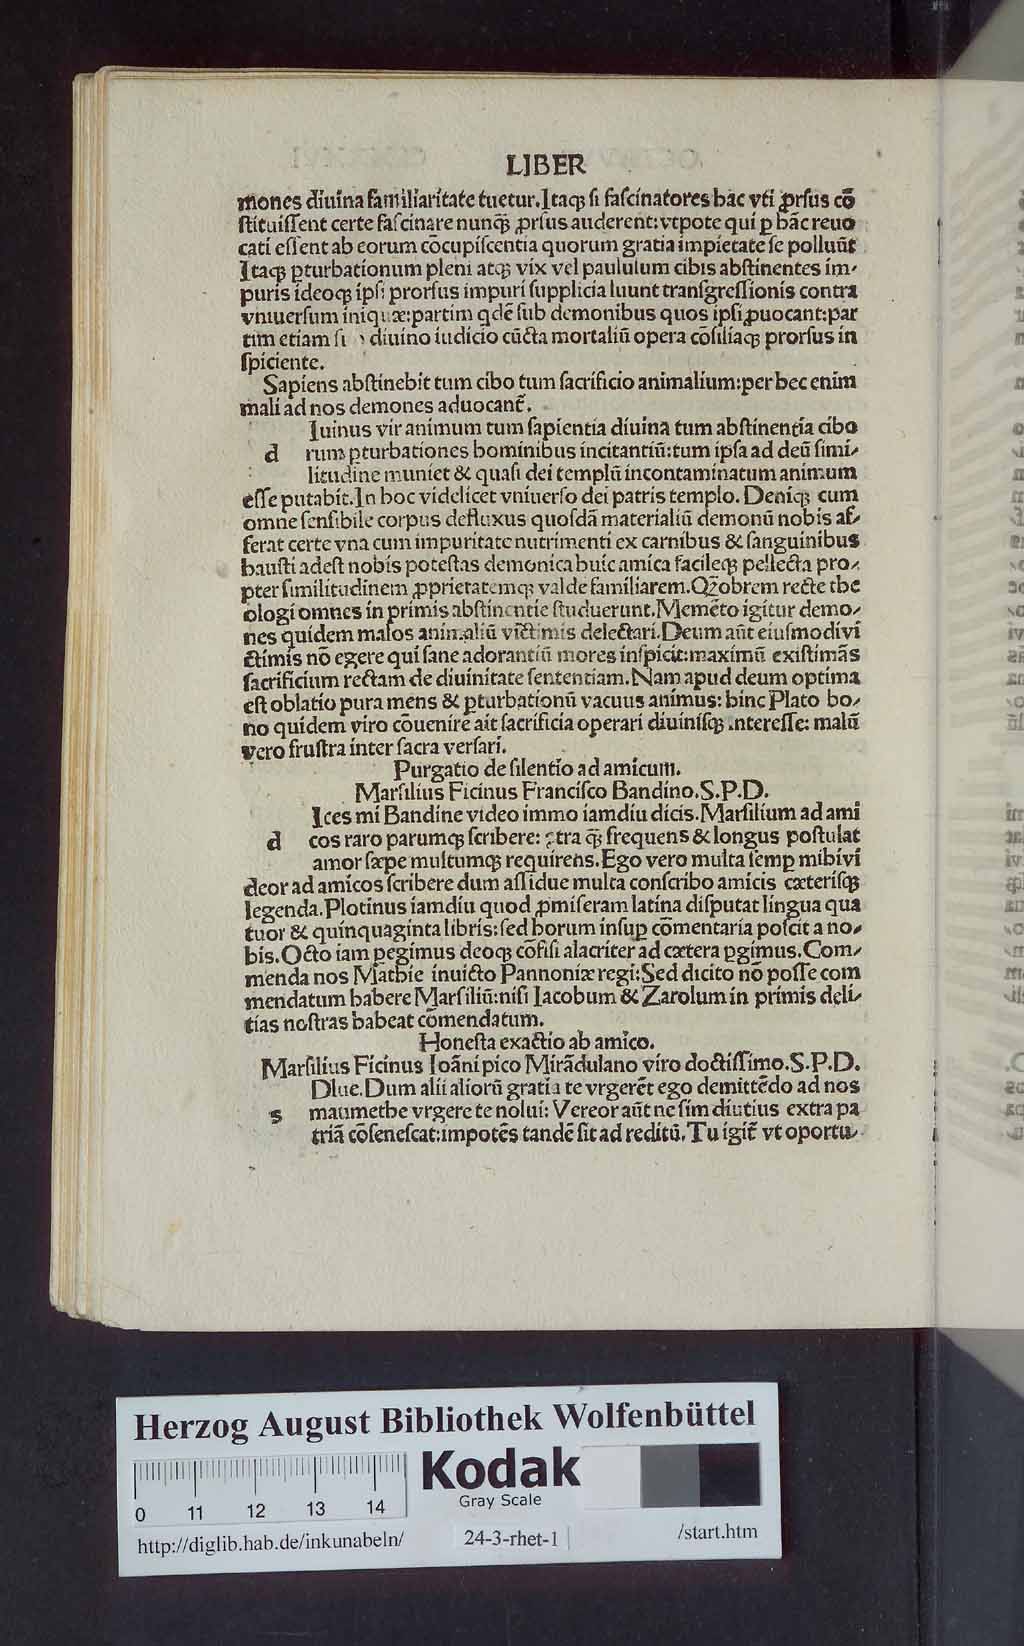 LIBER
mones diuina familiaritate tuetur. Itaqꝫ si fascinatores hac vti ꝓrsus cō
stituissent certe fascinare nunqꝫ̄ ꝓrsus auderent: vtpote qui ꝑ hāc reuo
cati essent ab eorum cōcupiscentia quorum gratia impietate se polluūt
Itaqꝫ ꝑturbationum pleni atqꝫ vix vel paululum cibis abstinentes im-
puris ideoqꝫ ipsi prorsus impuri supplicia luunt transgressionis contra
vniuersum iniquæ: partim qdē sub demonibus quos ipsi ꝓuocant: par
tim etiam diuino iudicio cūcta mortaliū opera cōsiliaqꝫ prorsus in
spiciente.
Sapiens abstinebit tum cibo tum sacrificio animalium: per hec enim
mali ad nos demones aduocant̄.
Iuinus vir animum tum sapientia diuina tum abstinentia cibo
d rum ꝑturbationes hominibus incitantiū: tum ipsa ad deū simi-
litudine muniet & quasi dei templū incontaminatum animum
esse putabit. In hoc videlicet vniuerso dei patris templo. Deniqꝫ cum
omne sensibile corpus defluxus quosdā materialiū demonū nobis af-
ferat certe vna cum impuritate nutrimenti ex carnibus & sanguinibus
hausti adest nobis potestas demonica huic amica facileqꝫ pellecta pro-
pter similitudinem ꝓprietatemqꝫ valde familiarem. Qꝫobrem recte the
ologi omnes in primis abstinentie studuerunt. Memēto igitur demo-
nes quidem malos animaliū victimis delectari. Deum aūt eiusmodi vi
ctimis nō egere qui sane adorantiū mores inspicit: maximū existimās
sacrificium rectam de diuinitate sententiam. Nam apud deum optima
est oblatio pura mens & ꝑturbationū vacuus animus: hinc Plato bo-
no quidem viro cōuenire ait sacrificia operari diuinisqꝫ interesse: malū
vero frustra inter sacra versari.
Purgatio de silentio ad amicum.
Marsilius Ficinus Francisco Bandino. S. P. D.
Ices mi Bandine video immo iamdiu dicis. Marsilium ad ami
d cos raro parumqꝫ scribere: qꝫ̄ frequens & longus postulat
amor sæpe multumqꝫ requirens. Ego vero multa semꝑ mihi vi
deor ad amicos scribere dum assidue multa conscribo amicis cæterisqꝫ
legenda. Plotinus iamdiu quod ꝓmiseram latina disputat lingua qua
tuor & quinquaginta libris: sed horum insuꝑ cōmentaria poscit a no-
bis. Octo iam pegimus deoqꝫ cōfisi alacriter ad cætera ꝑgimus. Com-
menda nos Mathie inuicto Pannoniæ regi: Sed dicito nō posse com
mendatum habere Marsiliū: nisi Iacobum & Zarolum in primis deli-
tias nostras habeat cōmendatum.
Honesta exactio ab amico.
Marsilius Ficinus Ioāni pico Mirādulano viro doctissimo. S. P. D.
Dlue. Dum alii aliorū gratia te vrgerēt ego demittēdo ad nos
s maumethe vrgere te nolui: Vereor aūt ne sim diutius extra pa
triā cōsenescat: impotēs tandē sit ad reditū. Tu igit̄ vt oportu-
Herzog August Bibliothek Wolfenbüttel
Kodak
Gray Scale
0 11 12 13 14
http://diglib.hab.de/inkunabeln/
24-3-rhet-1
/start.htm